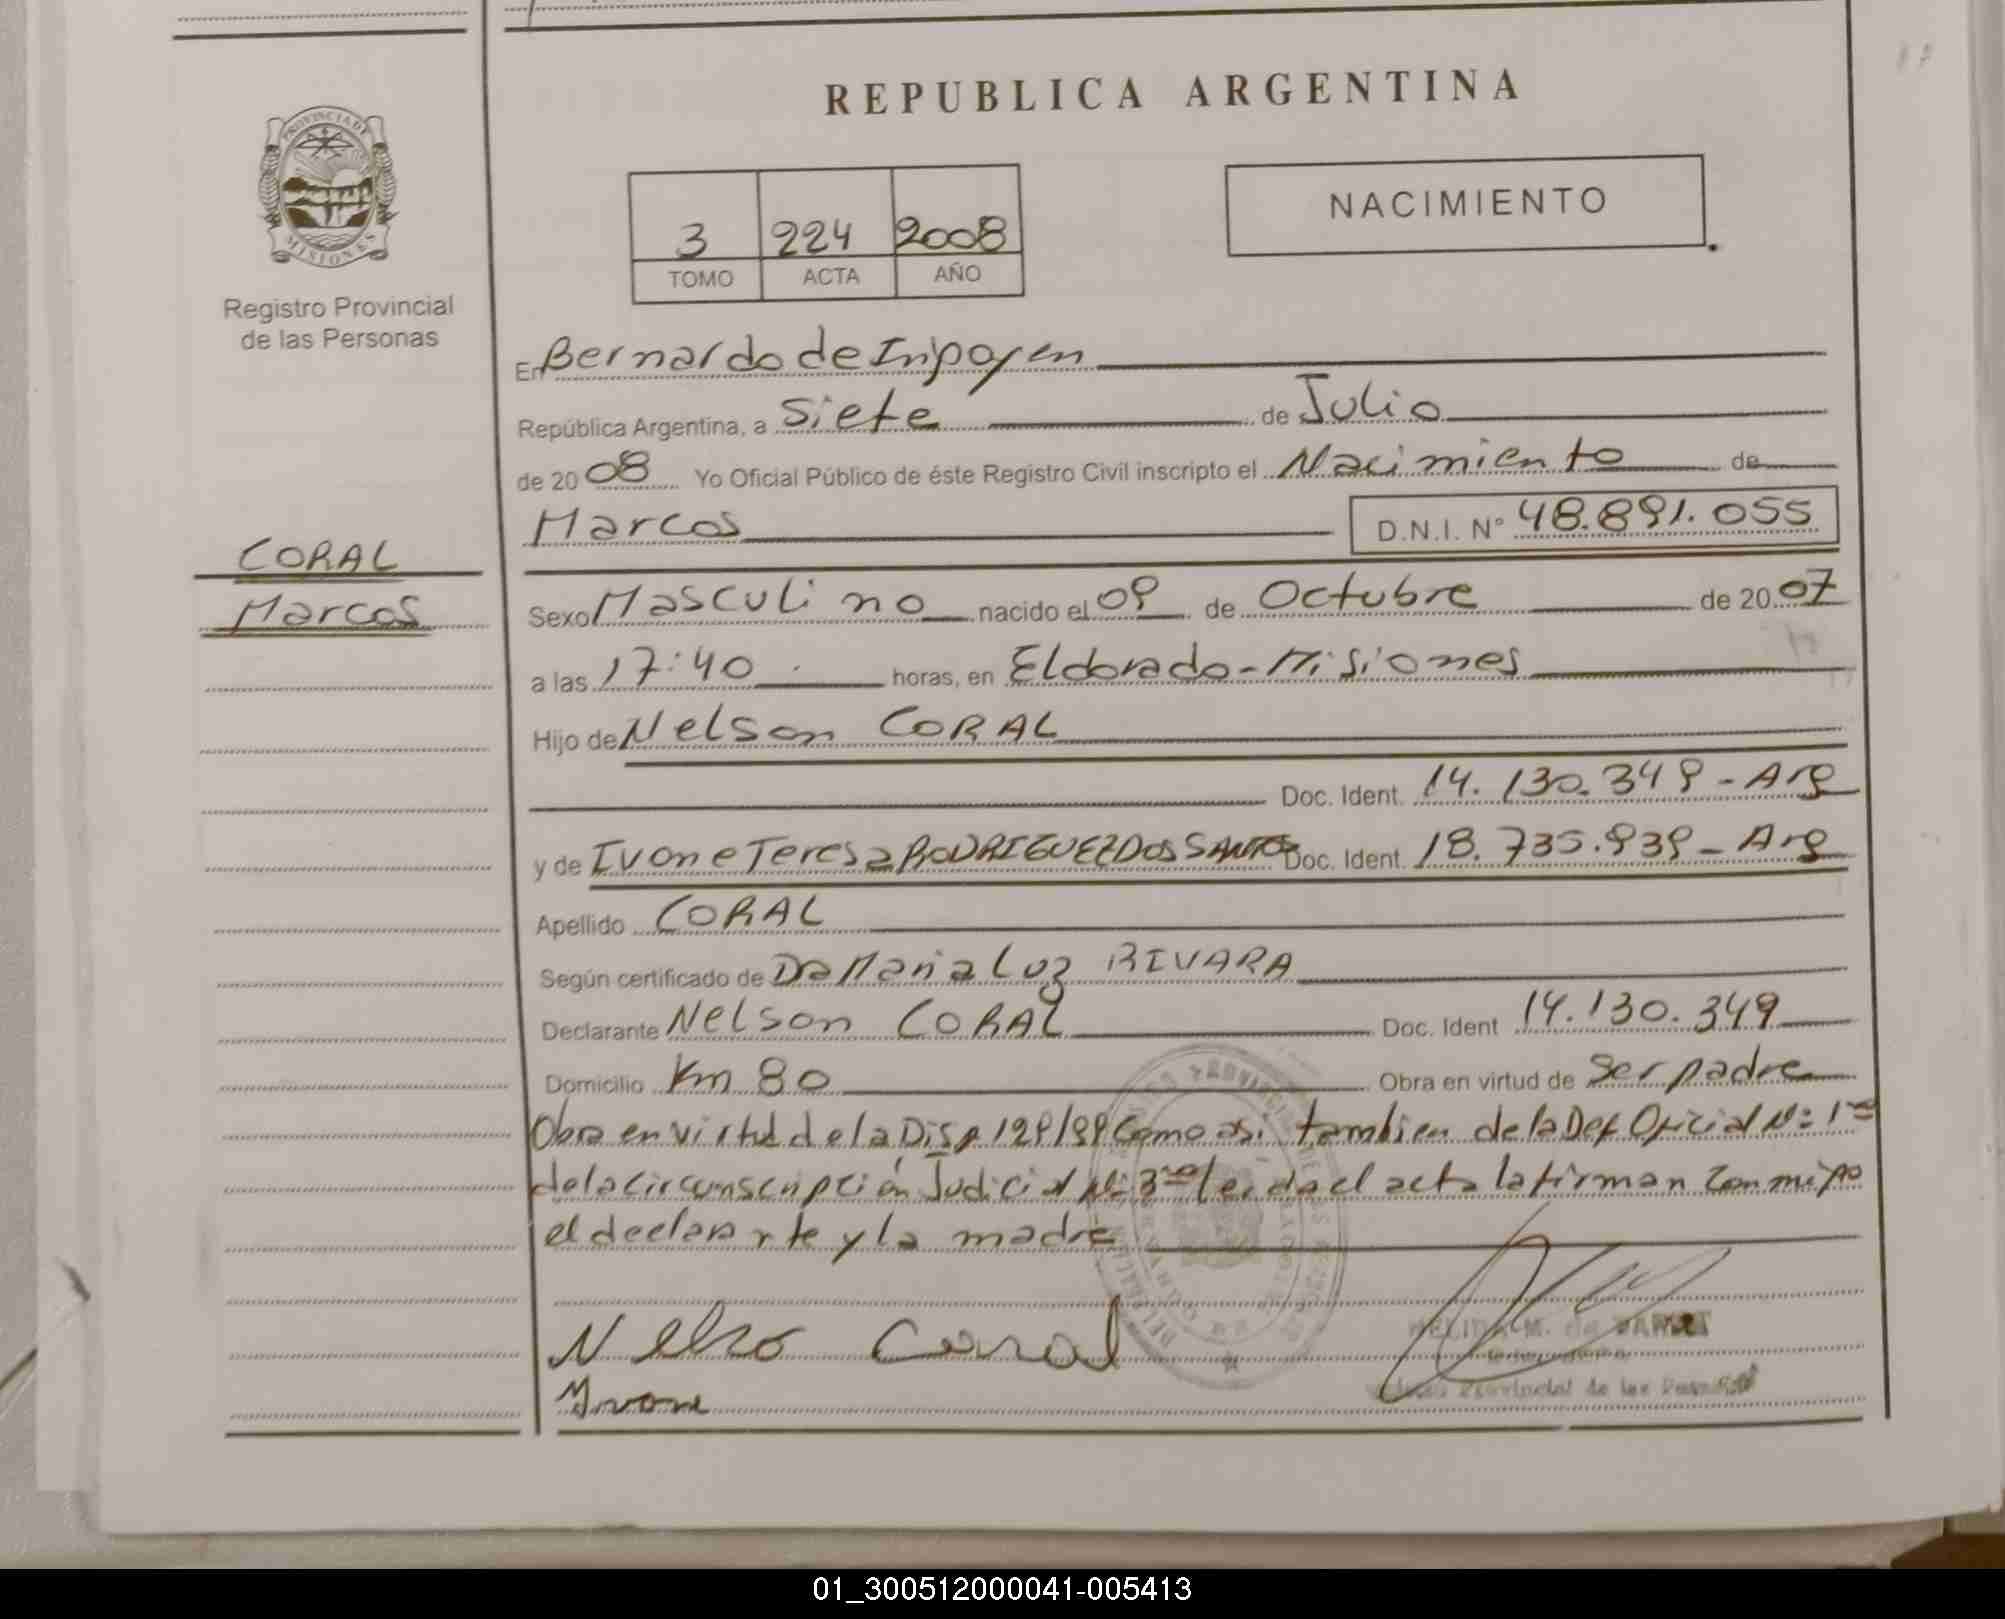 REPUBLICA ARGENTINA
PROVINCIA DE
MISIONES
Registro Provincial
de las Personas
3 224 2008
TOMO ACTA AÑO
NACIMIENTO
En Bernardo de Irigoyen
República Argentina, a Siete de Julio
de 2008 Yo Oficial Público de éste Registro Civil inscripto el Nacimiento de
Marcos D.N.I. Nº 48.891.055
CORAL
Marcos
Sexo Masculino nacido el 09 de Octubre de 2007
a las 17:40 horas, en Eldorado - Misiones
Hijo de Nelson CORAL
Doc. Ident. 14.130.349 - Arg
y de Ivone Teresa RODRIGUEZ DOS SANTOS Doc. Ident. 18.735.939 - Arg
Apellido CORAL
Según certificado de Da Maria Luz RIVARA
Declarante Nelson CORAL Doc. Ident 14.130.349
Domicilio Km 80 Obra en virtud de Ser padre
Obra en virtud de la Disp 129/99 Como asi tambien de la Def Oficial Nº 1
de la Circunscripción Judicial Nº 3 leida el acta la firman conmigo
el declarante y la madre
Nelso Coral
Ivone
NELIDA M. de
Provincial de las Personas
01_300512000041-005413